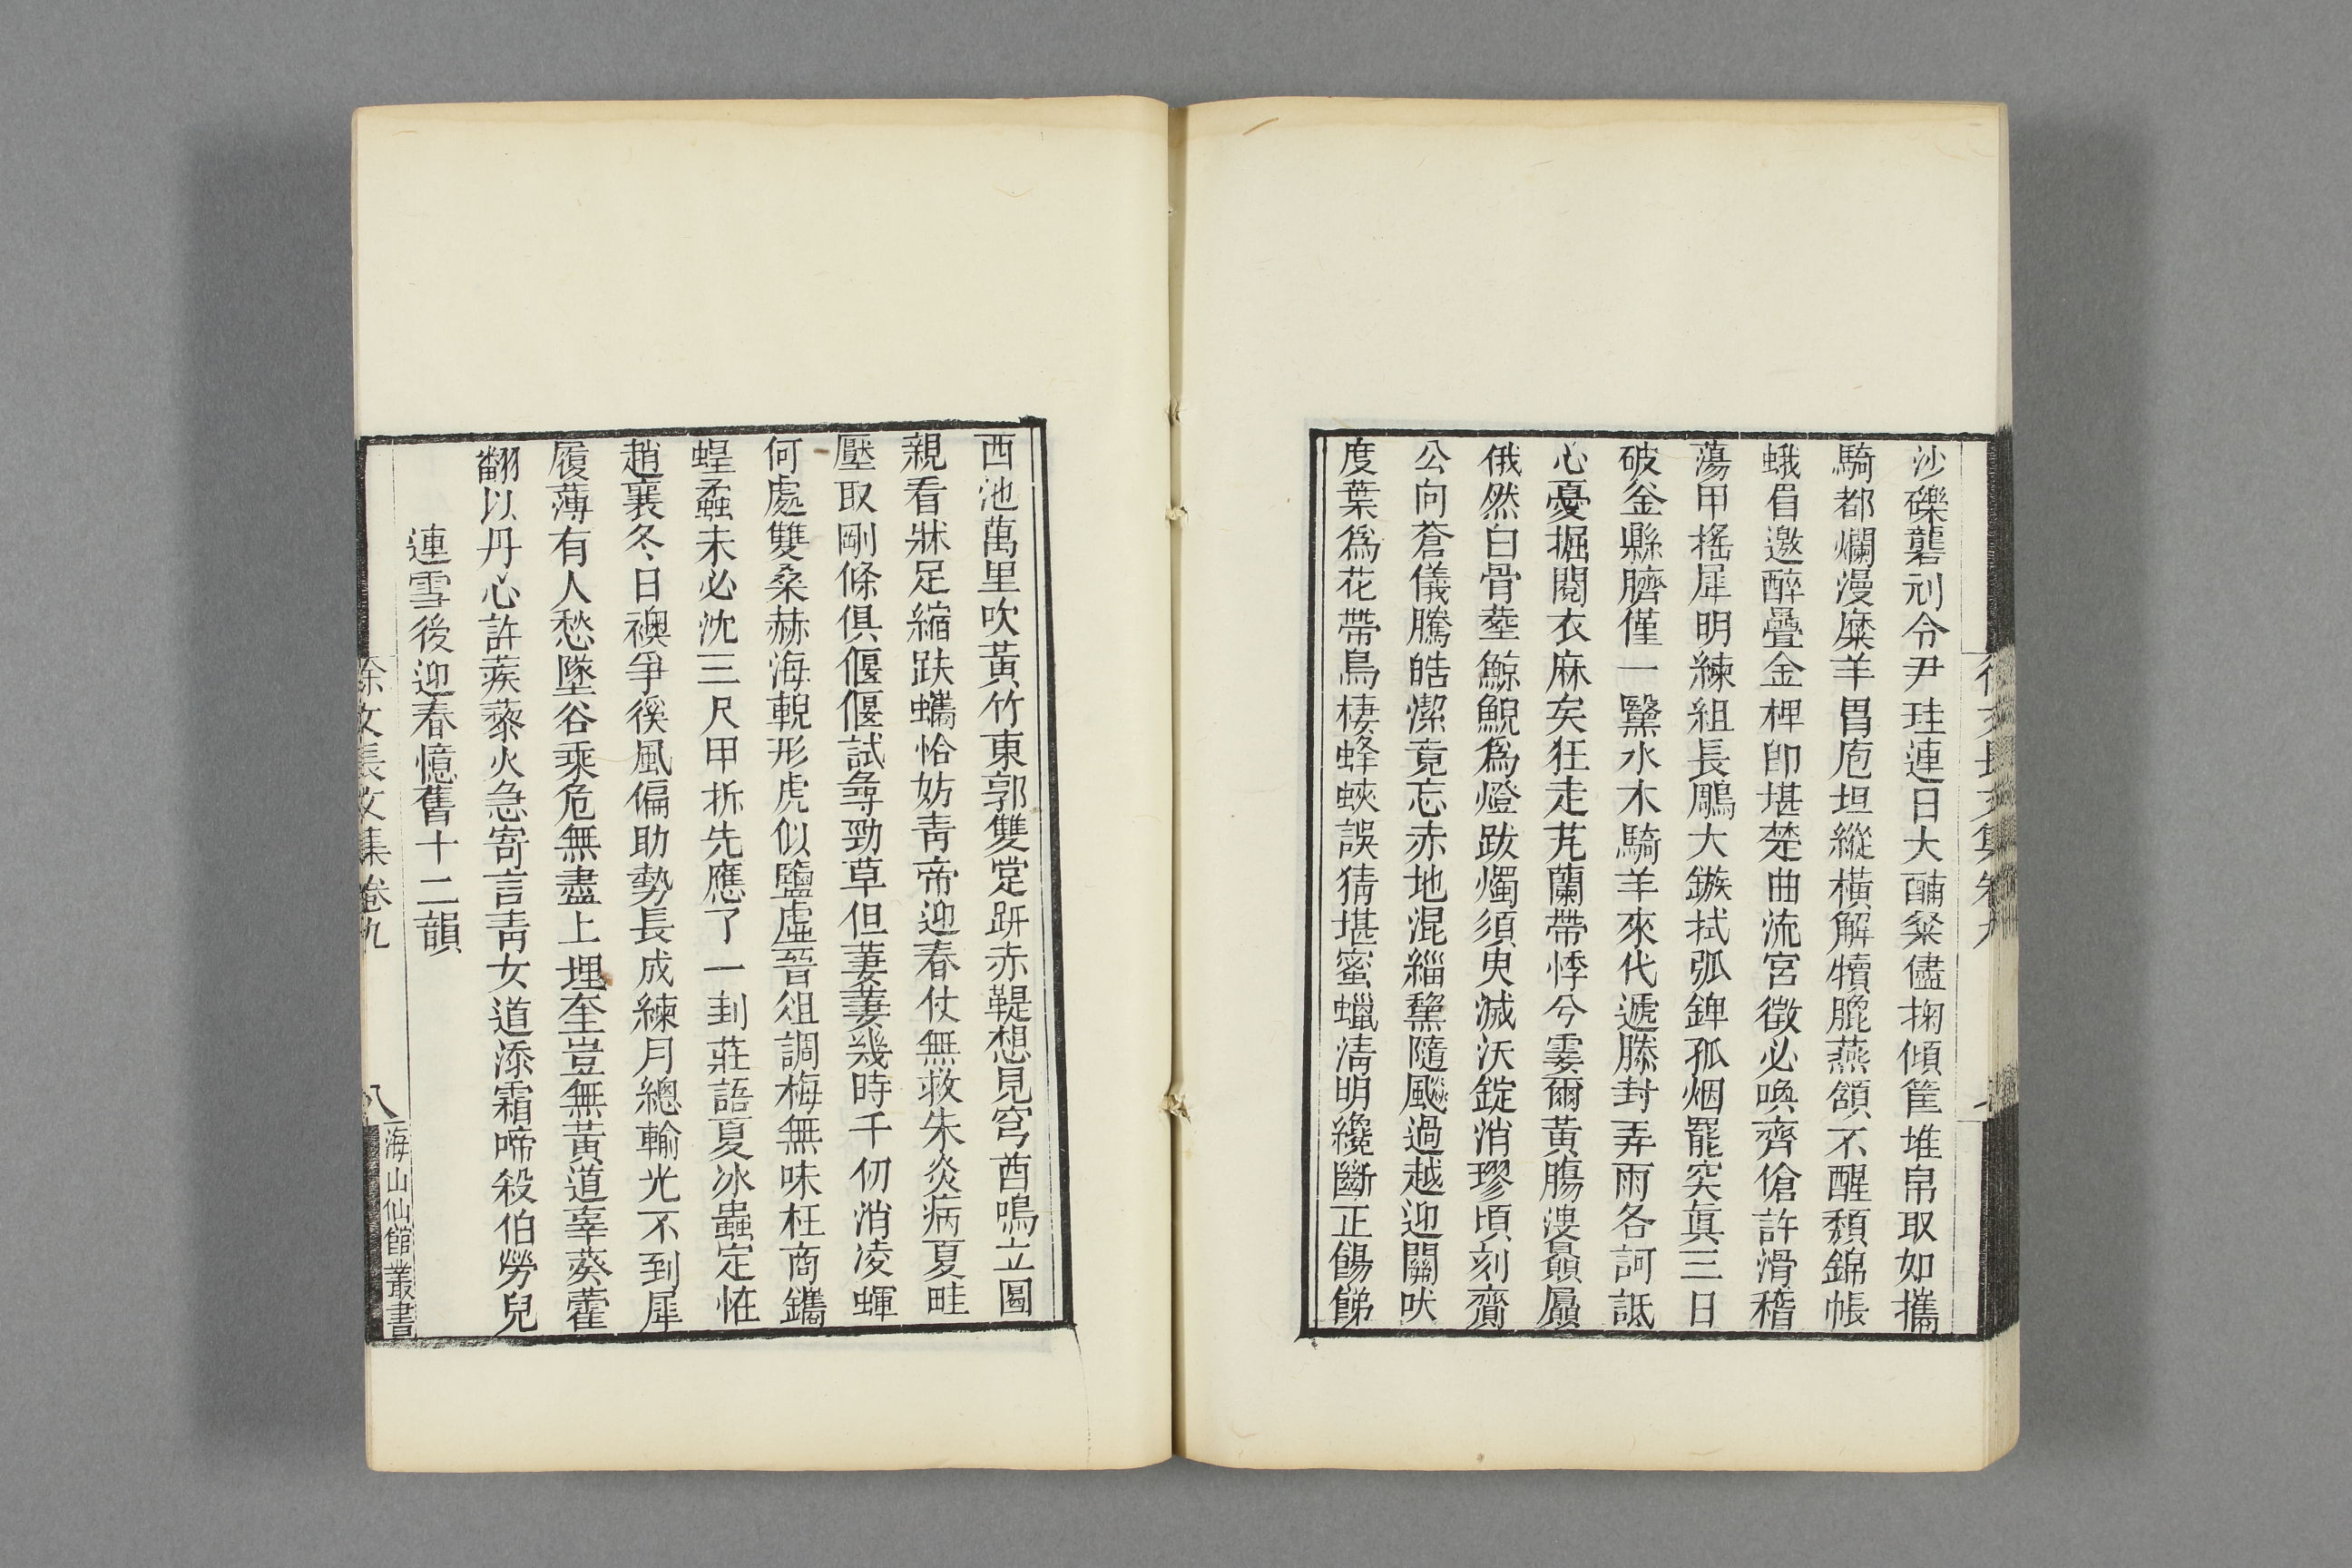 沙礫礱刹令尹珪連日大酺粲儘掬傾筐堆帛取如攜
騎都爛漫糜羊胃庖坦縱橫解犢膍燕頷不醒頹錦帳
蛾眉邀醉疊金椑卽堪楚曲流宮徵必喚齊傖許滑稽
蕩甲搖犀明練組長鵰大鏃拭弧錍孤烟罷突眞三日
破釜縣臍僅一黳水木騎羊來代遞滕封弄雨各訶詆
心憂掘閱衣麻矣狂走芄蘭帶悸兮霎爾黃腸溲贔屭
俄然白骨虀鯨鯢爲燈跋燭須臾滅沃錠消璆頃刻齎
公向蒼儀騰皓潔竟忘赤地混緇黧隨颷過越迎關吠
度葉爲花帶鳥棲蜂蛺誤猜堪蜜蠟淸明纔斷正餳餦
西池萬里吹黃竹東郭雙跫趼赤鞮想見穹酋鳴立圖
親看牀足縮趺蠵恰妨靑帝迎春仗無救朱炎病夏畦
壓取剛條俱偃偃試尋勁草但萋萋幾時千仞消凌蝉
何處雙桑赫海輗形虎似鹽虛晉俎調梅無味枉商鑴
蝗蟊未必沈三尺甲拆先應了一刲莊語夏冰蟲定恠
趙襄冬日襖爭徯風偏助勢長成練月總輸光不到犀
履薄有人愁墜谷乘危無盡上埋奎豈無黃道辜葵藿
翻以丹心許蒺藜火急寄言靑女道添霜啼殺伯勞兒
連雪後迎春憶舊十二韻
徐文長文集卷九
八
海山仙館叢書